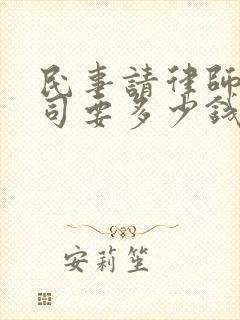 民事請律師
司要多少錢
安莉笙